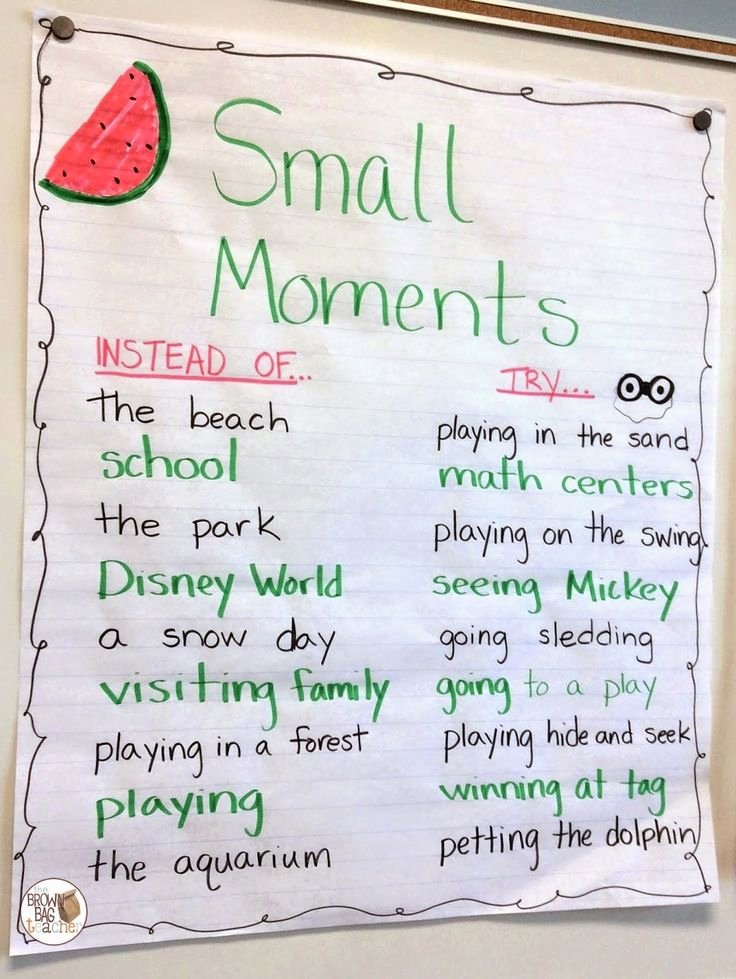 Small
Moments
INSTEAD OF...
TRY...
the beach
playing in the sand
school
math centers
the park
playing on the swing
Disney World
seeing Mickey
a snow day
going sledding
visiting family
going to a play
playing in a forest
playing hide and seek
playing
winning at tag
the aquarium
petting the dolphin
the
BROWN
BAG
teacher